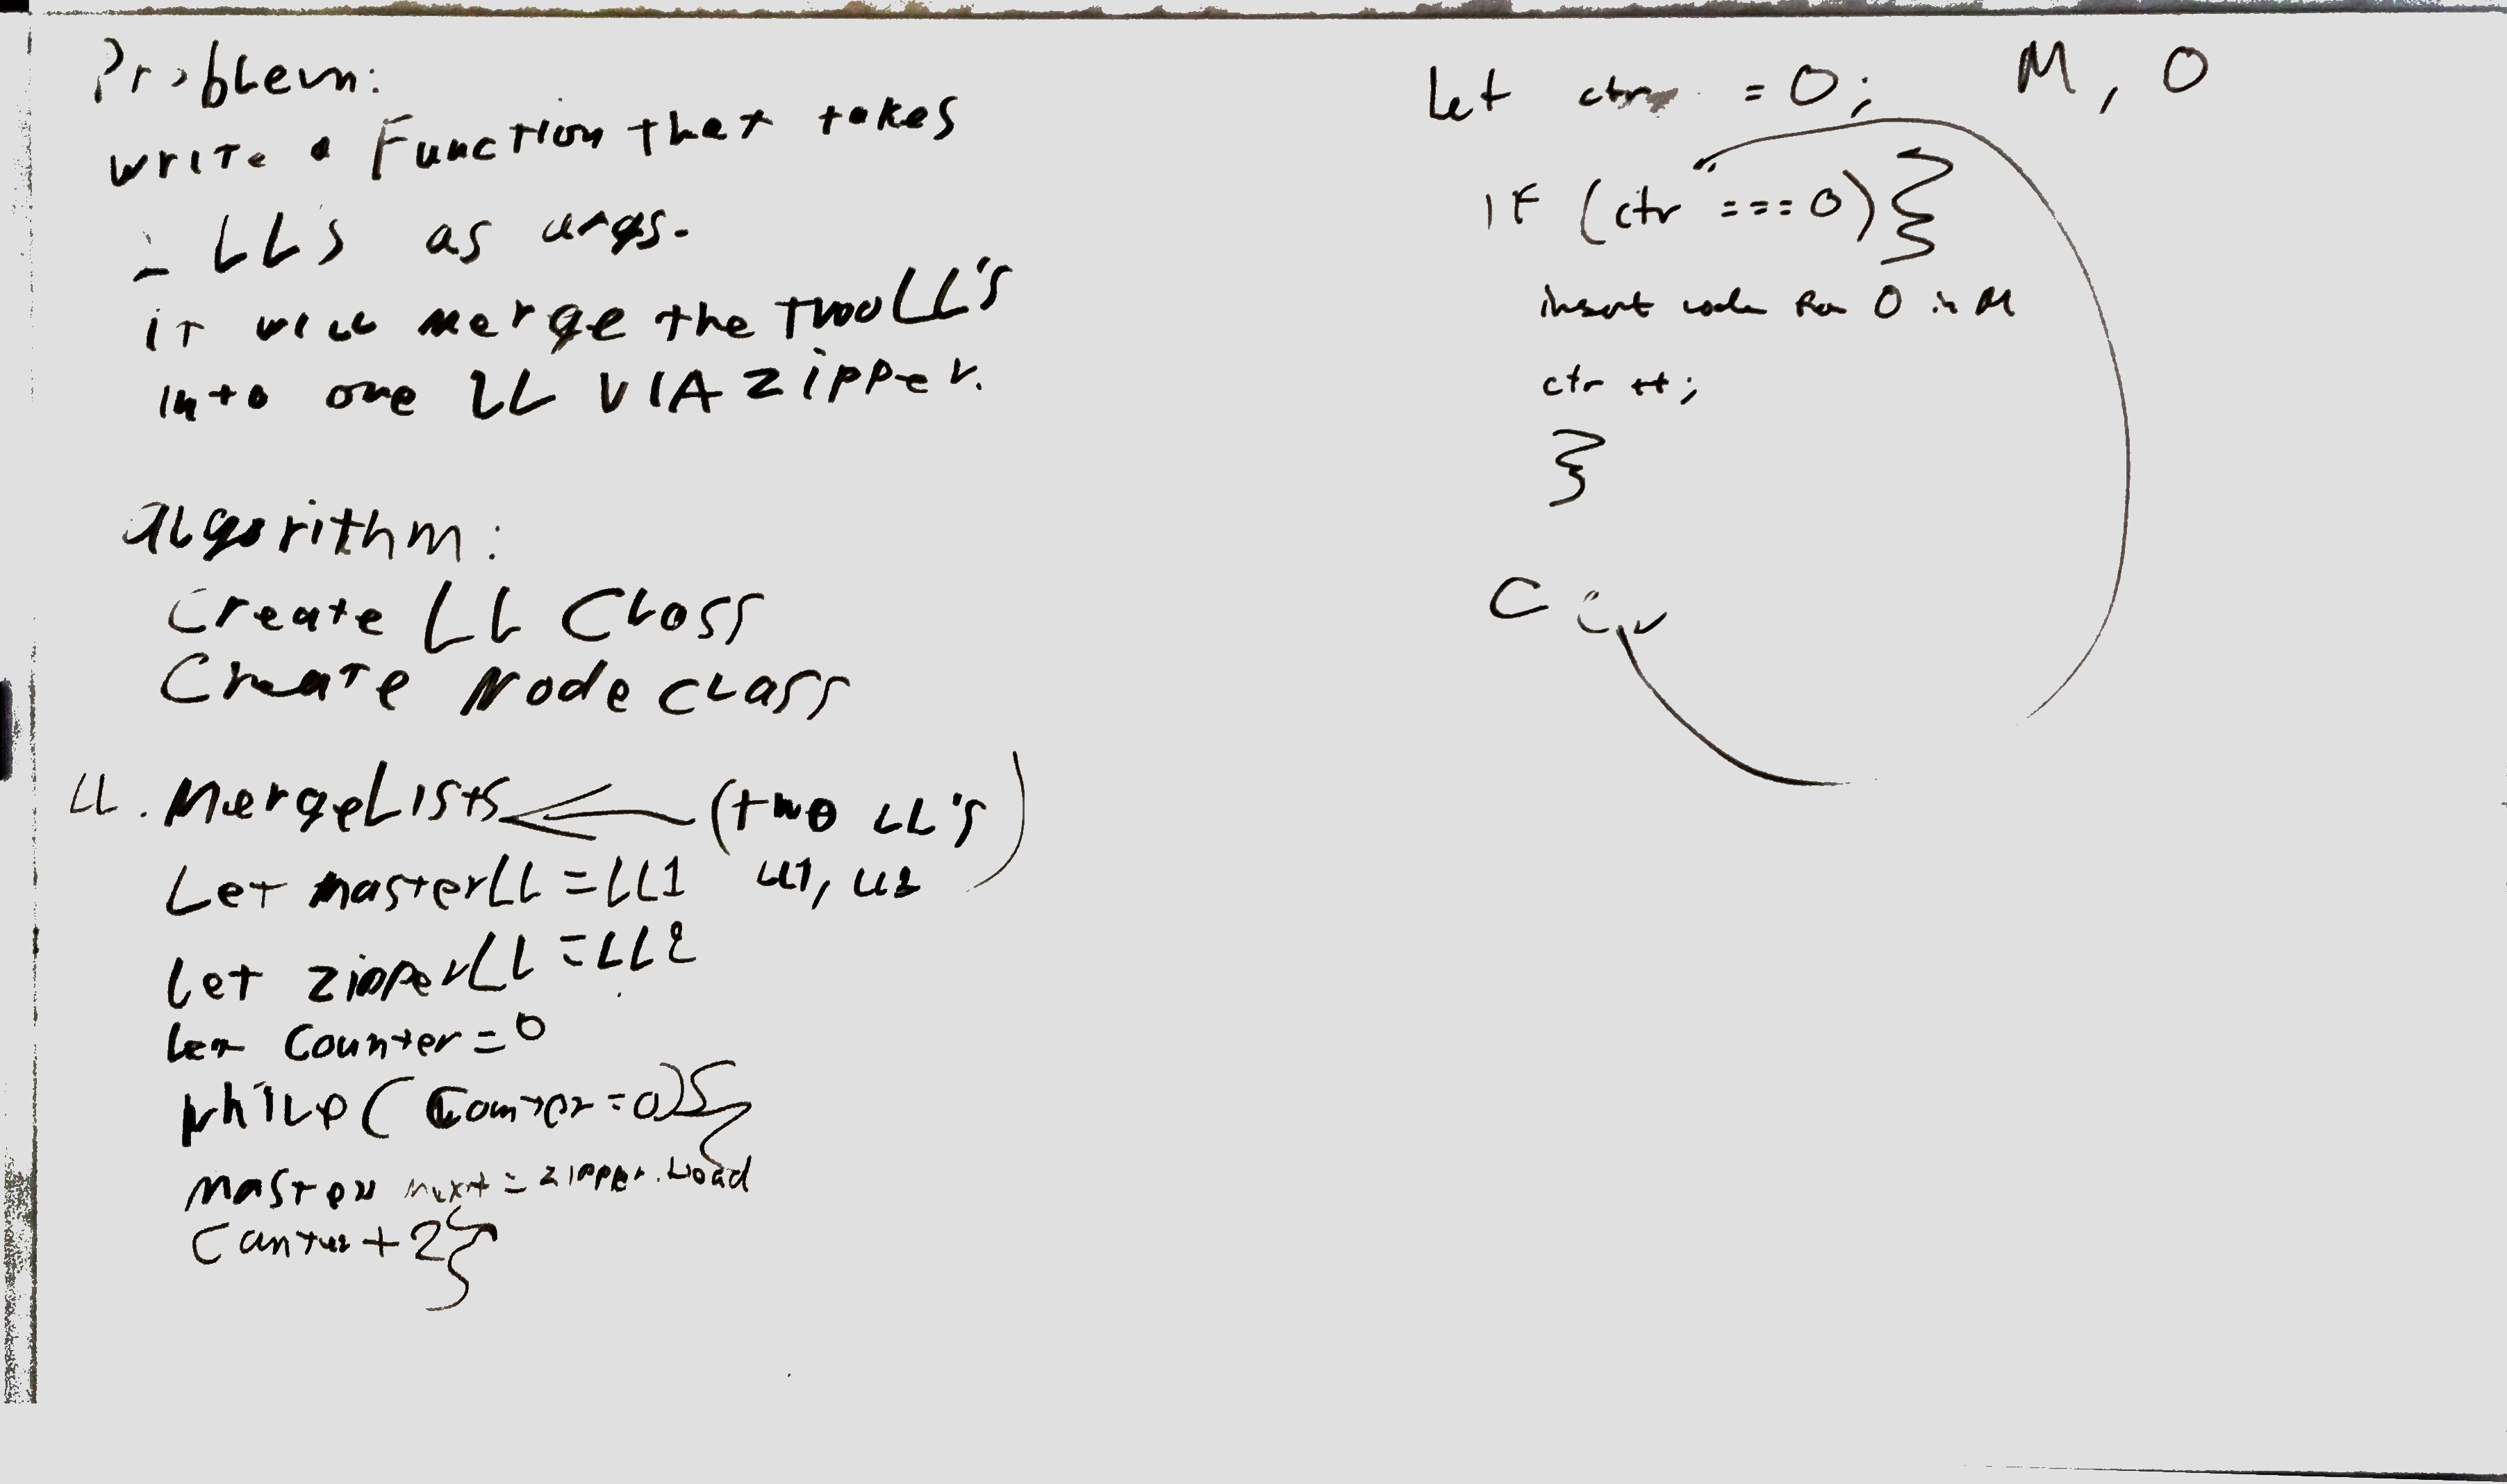 Problem:
write a Function that takes
LL's as args.
it will merge the two LL's
into one LL VIA zipper.
algorithm:
Create LL Class
Create Node class
LL.MergeLists (two LL's)
Let masterLL = LL1 LL1, LL2
Let zipperLL = LL2
Let Counter = 0
while (Counter = 0) {
Master next = zipper.head
Counter + 2 }
let ctr = 0; M, O
IF (ctr === 0) {
insert O in M
ctr ++;
}
C